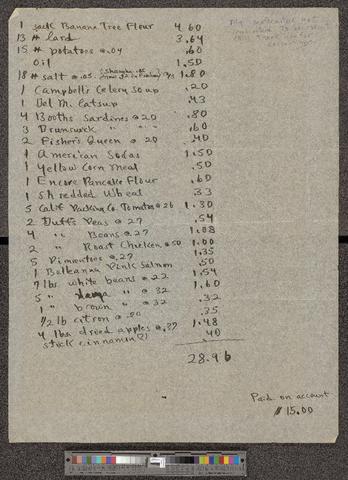 1 sack Banana Tree Flour 4.60
13 # lard 3.64
15 # potatoes @.04 .60
Oil 1.50
18 # salt @.05. 1.80
1 Campbell's Celery Soup .20
1 Del M. Catsup .43
4 Booths Sardines @ 20 .80
3 Brunswick " " .60
2 Fisher's Queen @ 20 .40
1 American Sodas 1.50
1 Yellow Corn Meal .50
1 Encore Pancake Flour .60
1 Shredded Wheat 33
5 Calif Packing Co. Tomato @ 26 1.30
2 Duffs Peas @ 27 .54
4 " Beans @ 27 1.08
2 " Roast Chicken @ 50 1.00
5 Pimientoes @ 27 1.35
1 Balleanna Pink Salmon .50
7 lbs white beans @ 22 1.54
5 " " @ 32 1.60
1 " brown " @ 32 .32
1/2 lb citron @ .35
4 lbs dried apples @ .37 1.48
stick cinnamon (2) 40
28.96
Paid on account
$ 15.00